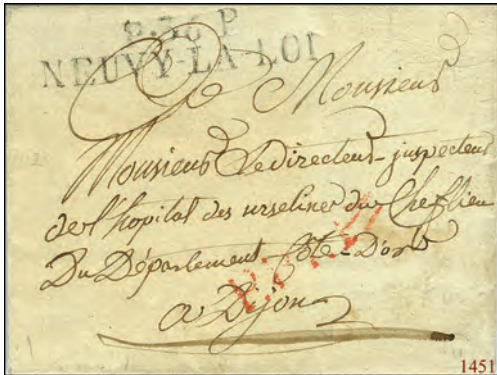 P.36 P
NEUVY-LA-LOI
A Monsieur
Monsieur Le directeur-juspecteur
de l'hopital des urselines du Cheflieu
Du Département Côte-D'or
a Dijon
1451